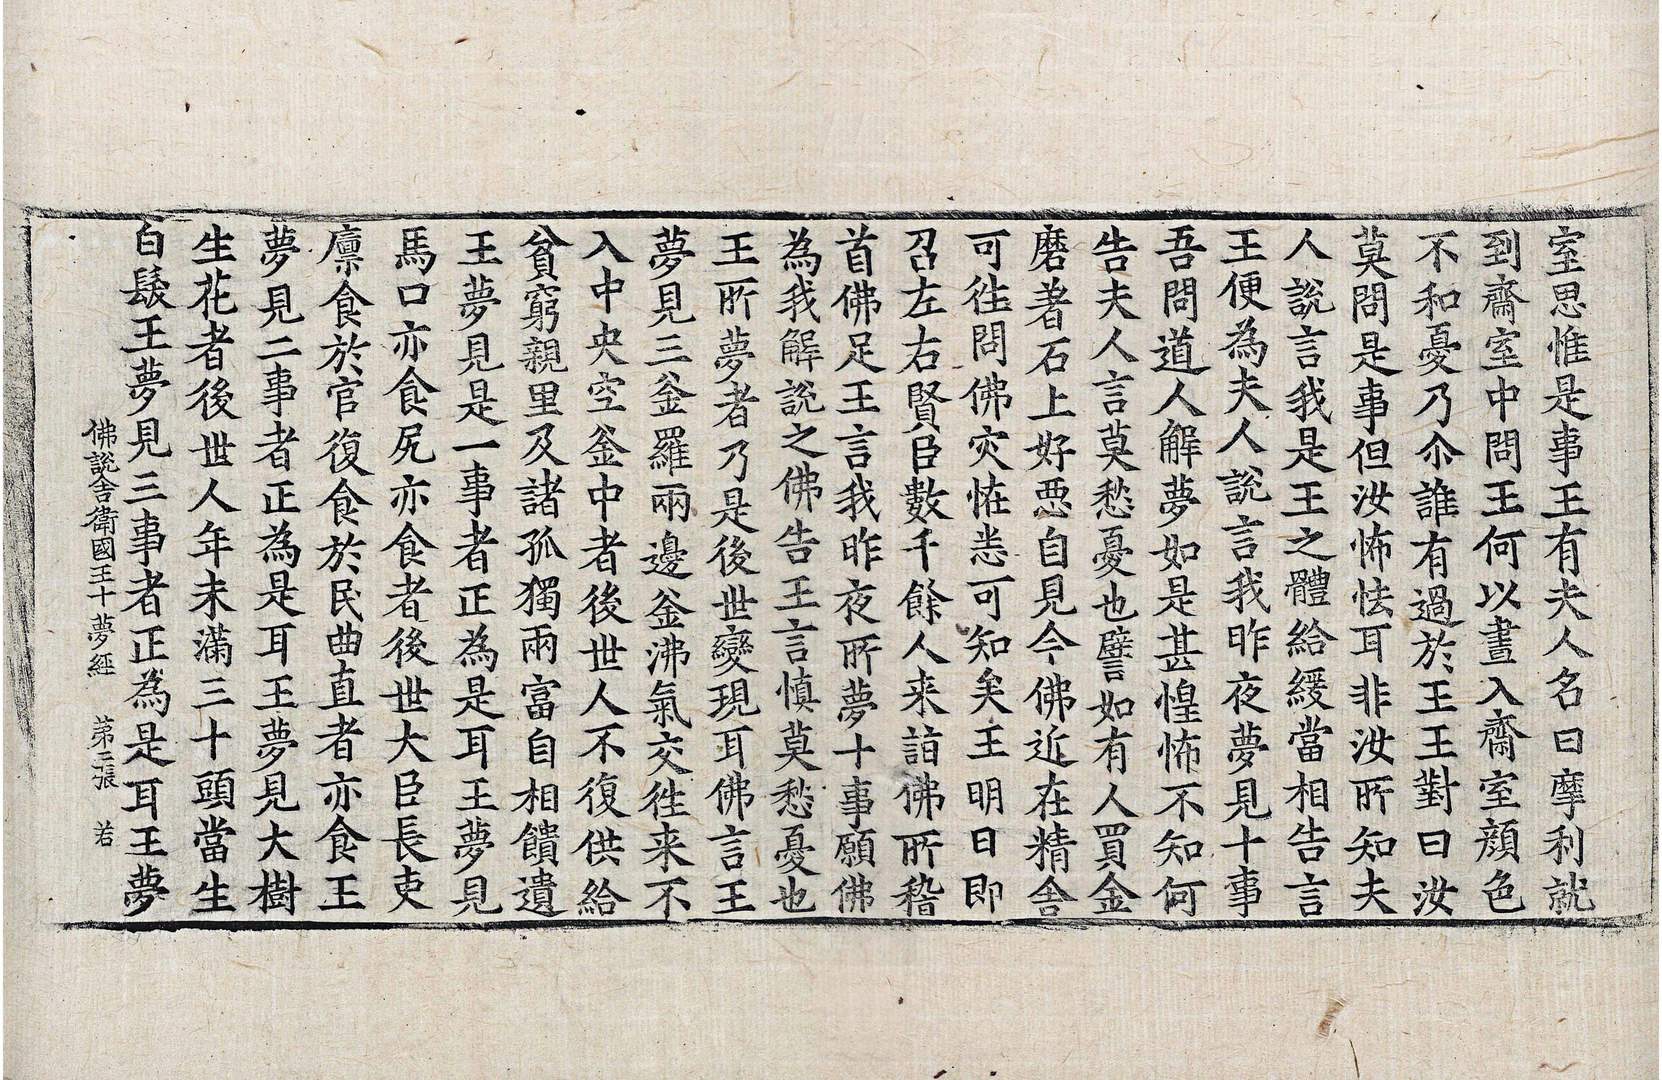 室思惟是事王有夫人名曰摩利就
到齋室中問王何以晝入齋室顔色
不和憂乃尒誰有過於王王對曰汝
莫問是事但汝怖怯耳非汝所知夫
人說言我是王之體給緩當相告言
王便為夫人說言我昨夜夢見十事
吾問道人解夢如是甚惶怖不知何
告夫人言莫愁憂也譬如有人買金
磨著石上好惡自見今佛近在精舍
可往問佛灾恠恙可知矣王明日即
召左右賢臣數千餘人来詣佛所稽
首佛足王言我昨夜所夢十事願佛
為我解說之佛告王言慎莫愁憂也
王所夢者乃是後世變現耳佛言王
夢見三釜羅兩邊釜沸氣交往来不
入中央空釜中者後世人不復供給
貧窮親里及諸孤獨兩富自相饋遺
王夢見是一事者正為是耳王夢見
馬口亦食尻亦食者後世大臣長吏
廪食於官復食於民曲直者亦食王
夢見二事者正為是耳王夢見大樹
生花者後世人年未滿三十頭當生
白髮王夢見三事者正為是耳王夢
佛說舍衛國王十夢經 第二張 若